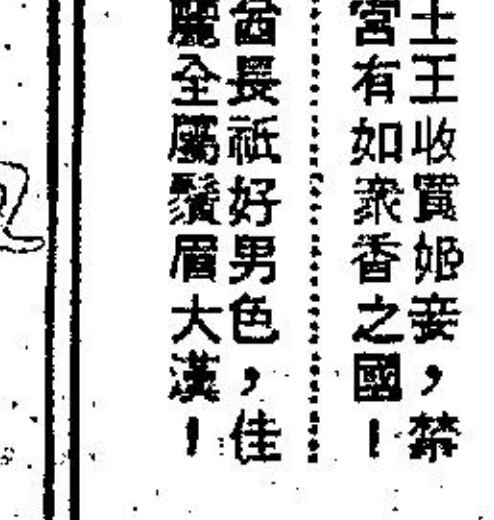 土王收買姬妾，禁
宮有如衆香之國！
酋長祇好男色，佳
麗全屬鬚眉大漢！